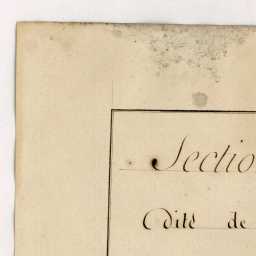 Sectio
Dité de